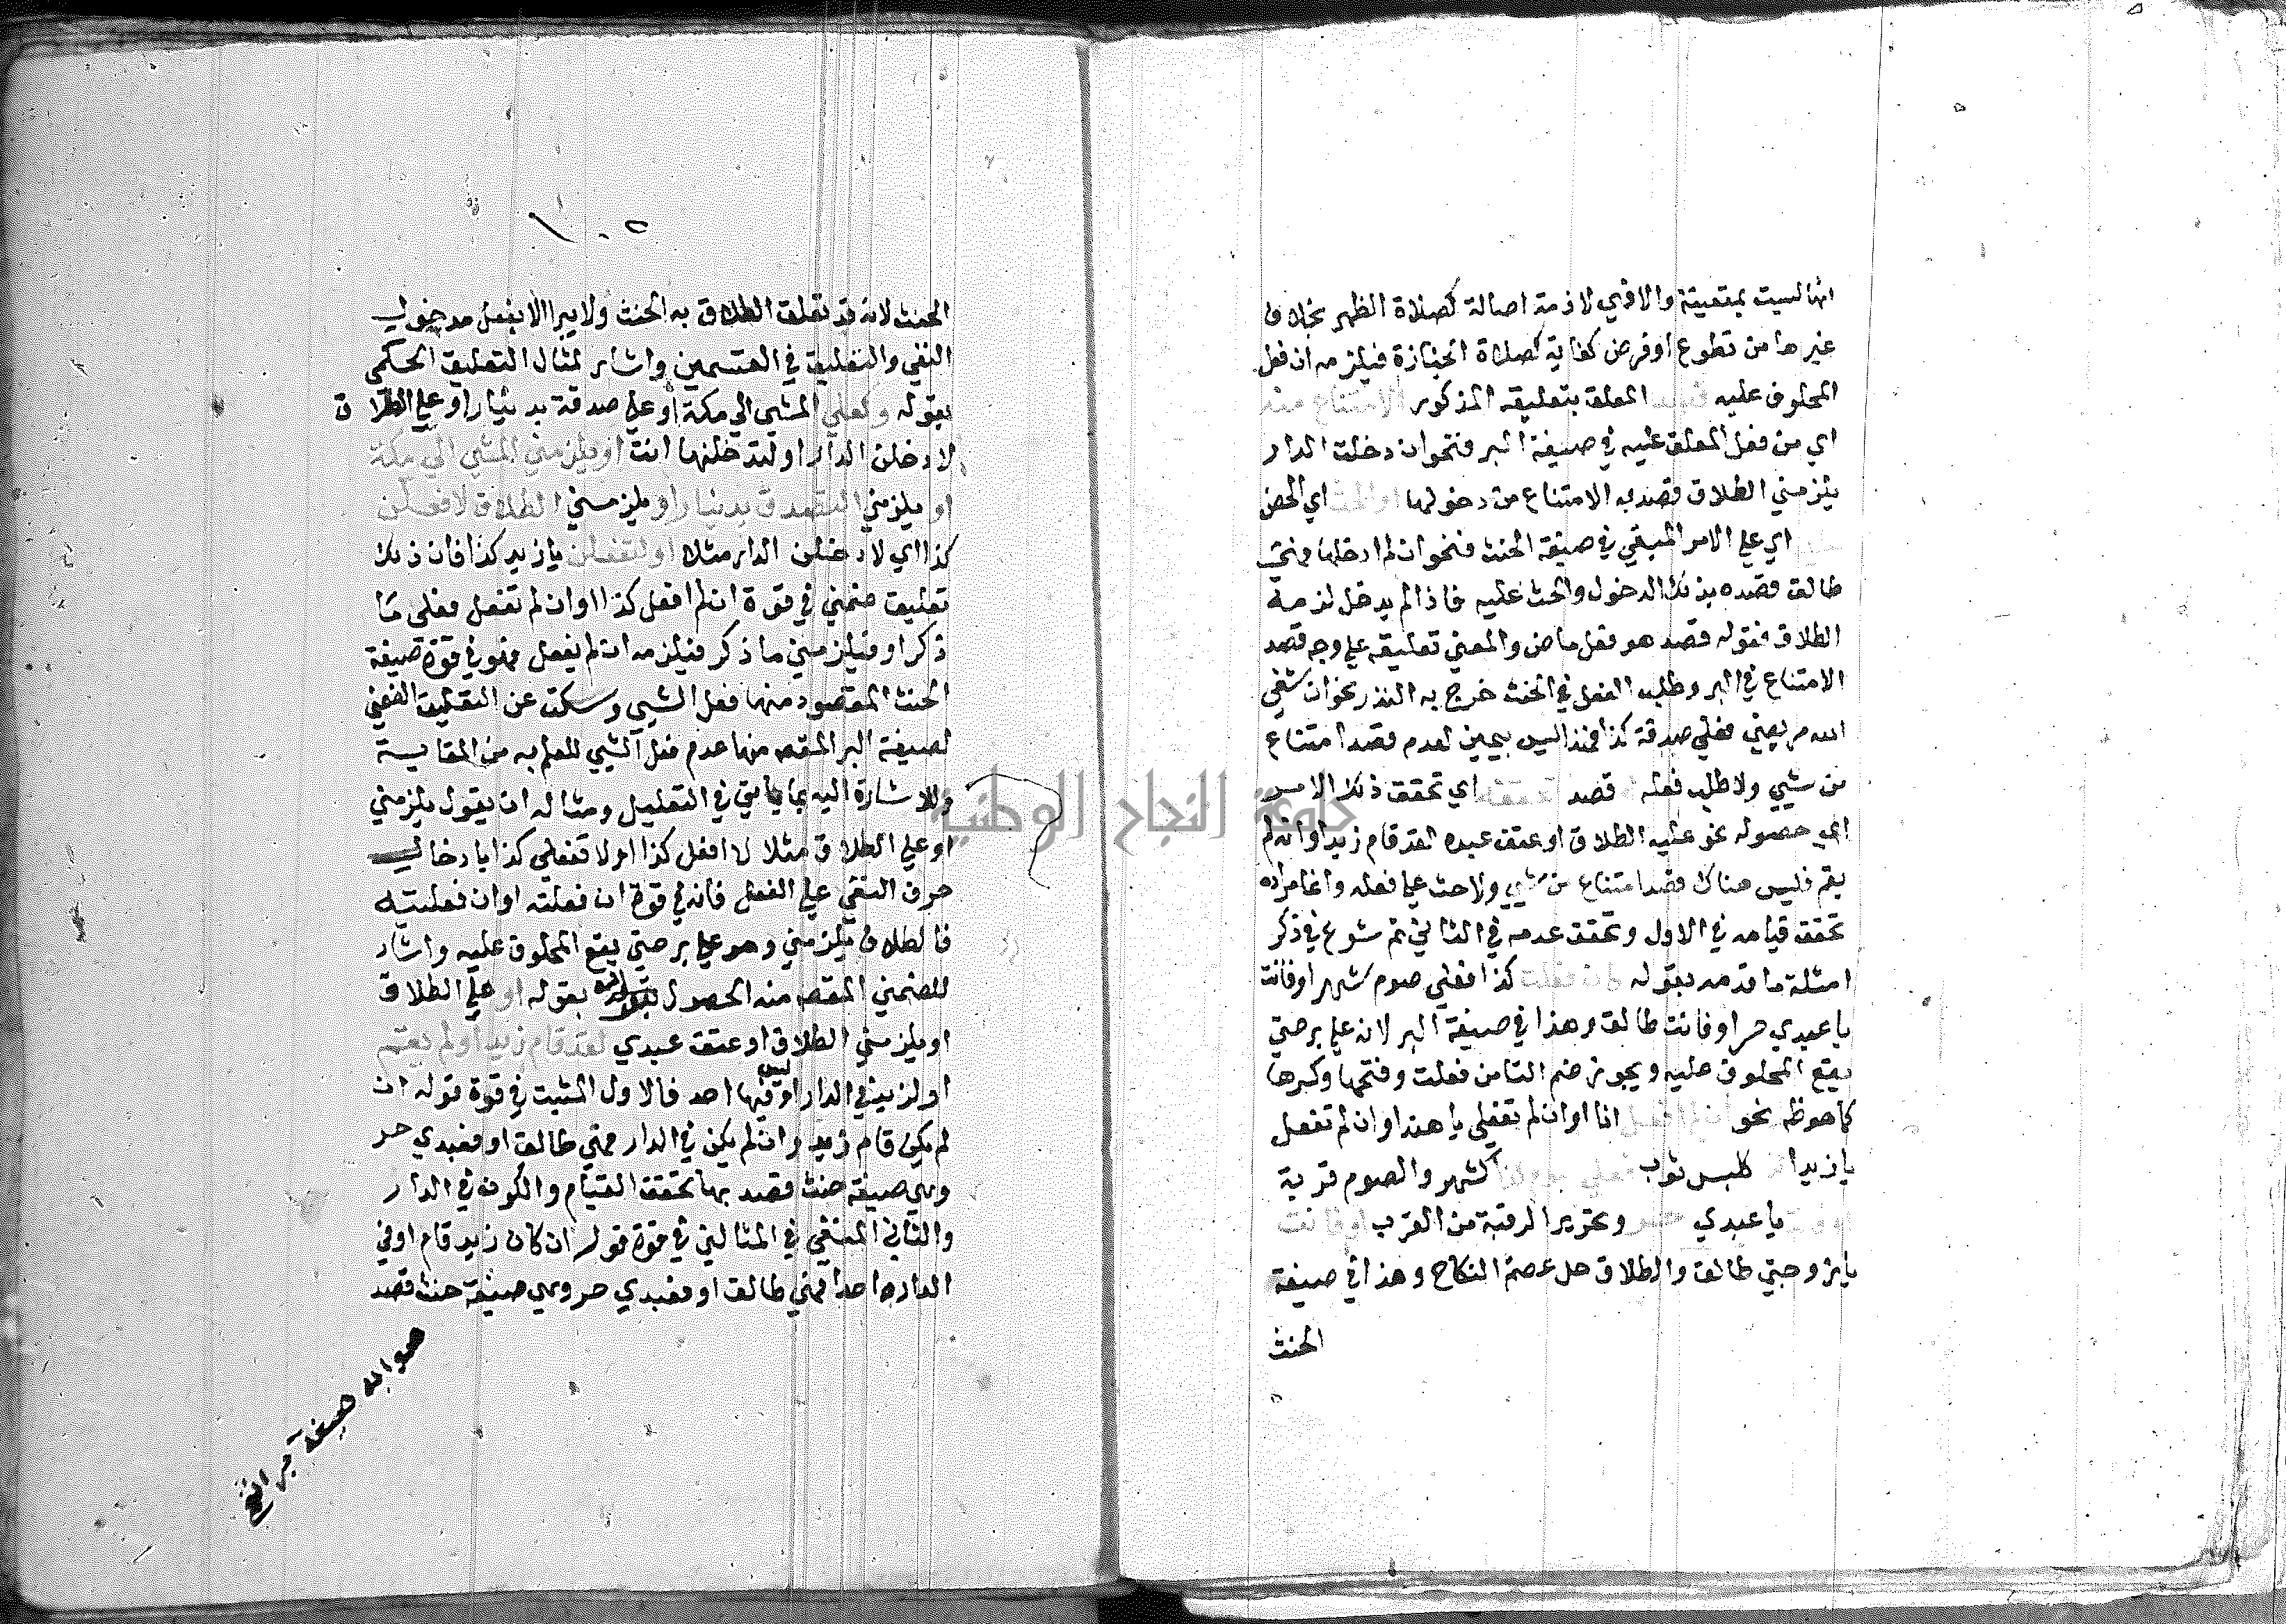 انها ليست بمتعينة والا فهي لازمة اصالة كصلاة الظهر بخلاف
غيرها من تطوع او فرض كفاية كصلاة الجنازة فيلزمه ان فعل
المحلوف عليه المعلق بتعليقه المذكور الامتناع منه
اي من فعل المعلق عليه في صيغة البر فنحو ان دخلت الدار
يلزمني الطلاق قصد به الامتناع من دخولها او الحث اي الحض
اي على الامر المبقي في صيغة الحنث فنحو ان لم ادخلها فهي
طالق قصده بذلك الدخول والحث عليه فاذا لم يدخل لزمه
الطلاق فقوله قصد هو فعل ماض والمعني تعليقه على وجه قصد
الامتناع في البر وطلب الفعل في الحنث خرج به النذر نحو ان شفي
الله مريضي فعلي صدقة كذا فهذا ليس بيمين لعدم قصد امتناع
من شيي ولا طلب فعله قصد تحققه اي تحقق ذلك الامر
اي حصوله نحو عليه الطلاق او عتق عبده لقد قام زيد او انه لم
يقم فليس هناك قصد امتناع من شيي ولا حث على فعله وانما مراده
تحقق قيامه في الاول وتحقق عدمه في الثاني ثم شرع في ذكر
امثلة ما قدمه بقوله كان فعلت كذا فعلي صوم شهر او فانت
يا عبدي حر او فانت طالق وهذا في صيغة البر لانه على بر حتي
يقع المحلوف عليه ويجوز ضم التا من فعلت وفتحها وكسرها
كما هو ظ نحو ان لم افعل انا او ان لم تفعلي يا هند او ان لم تفعل
يا زيد كلبس ثوب فعلي صوم كذا كشهر والصوم قربة
او فانت يا عبدي حر وتحرير الرقبة من القرب او فانت
يا زوجتي طالق والطلاق حل عصمة النكاح وهذا في صيغة
الحنث
١٠٥
الحنث لانه قد تعلق الطلاق به الحنث ولا يبرا الا بفعل مدخول
النفي والتعليق في القسمين واشار لمثال التعليق الحكمي
بقوله وكعلي المشي الي مكة او علي صدقة بدينار او علي الطلاق
لادخلن الدار او لتدخلنها انت او يلزمني المشي الي مكة
او يلزمني التصدق بدينار او يلزمني الطلاق لافعلن
كذا اي لادخلن الدار مثلا او لتفعلن يا زيد كذا فان ذلك
تعليق ضمني في قوة ان لم افعل كذا او ان لم تفعل فعلي ما
ذكر او فيلزمني ما ذكر فيلزمه ان لم يفعل فهو في قوة صيغة
الحنث المقصود منها فعل الشيي وسكت عن التعليق الضمني
لصيغة البر المقصه منها عدم فعل الشيي للعلم به من المقايسة
وللاشارة اليه بما ياتي في التعليل ومثاله ان يقول يلزمني
او علي الطلاق مثلا لا افعل كذا او لا تفعلي كذا بادخال
حرف النفي على الفعل فانه في قوة ان فعلته او ان فعلتيه
فالطلاق يلزمني وهو على بر حتي يقع المحلوف عليه واشار
للضمني المقصه منه الحصول بقوله او علي الطلاق
او يلزمني الطلاق او عتق عبدي لقد قام زيد او لم يقم
او لزيد في الدار او ليس فيها احد فالاول المثبت في قوة قوله ان
لم يكن قام زيد وان لم يكن في الدار فهي طالق او فعبدي حر
وهي صيغة حنث قصد بها تحقق القيام والكون في الدار
والثاني المنفي في المثالين في قوة قوله ان كان زيد قام او في
الدار احد فهي طالق او فعبدي حر وهي صيغة حنث قصد
صوابه صيغة بر الخ
جامعة النجاح الوطنية